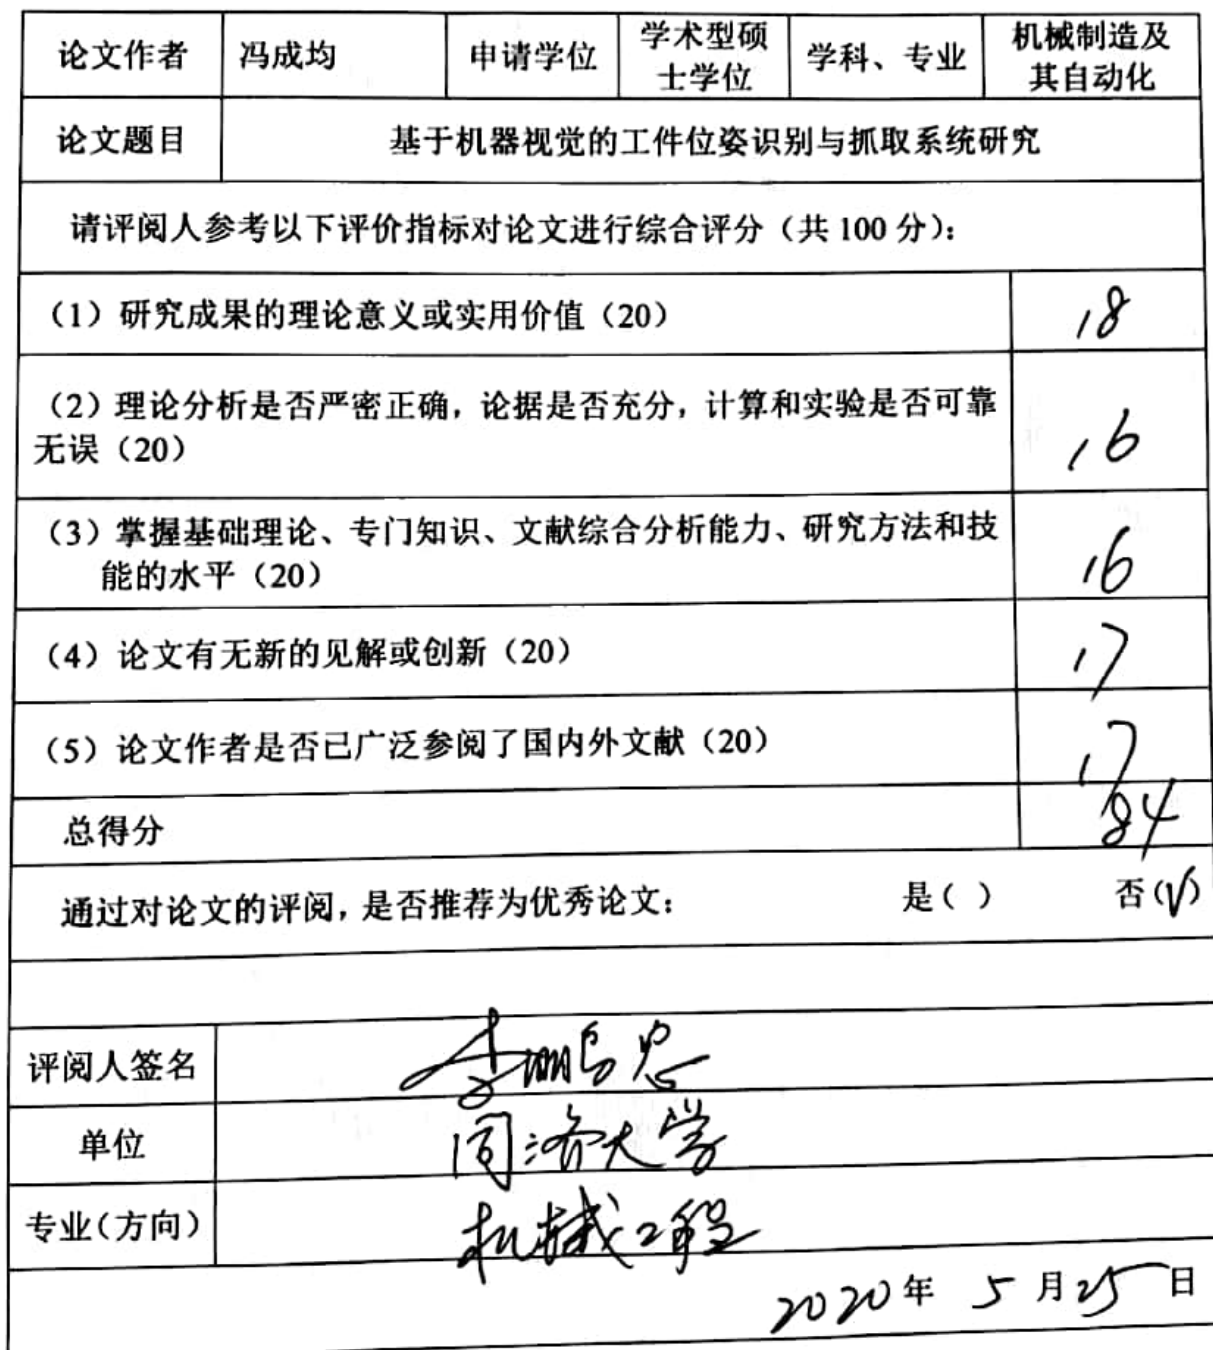 论文作者 冯成均 申请学位 学术型硕 学科、专业 机械制造及
士学位 其自动化
论文题目 基于机器视觉的工件位姿识别与抓取系统研究
请评阅人参考以下评价指标对论文进行综合评分（共 100 分）：
（1）研究成果的理论意义或实用价值（20） 18
（2）理论分析是否严密正确，论据是否充分，计算和实验是否可靠
无误（20） 16
（3）掌握基础理论、专门知识、文献综合分析能力、研究方法和技
能的水平（20） 16
（4）论文有无新的见解或创新（20） 17
（5）论文作者是否已广泛参阅了国内外文献（20） 17
总得分 84
通过对论文的评阅，是否推荐为优秀论文： 是（ ） 否（√）
评阅人签名 李鹏忠
单位 同济大学
专业（方向） 机械工程
2020 年 5 月 25 日